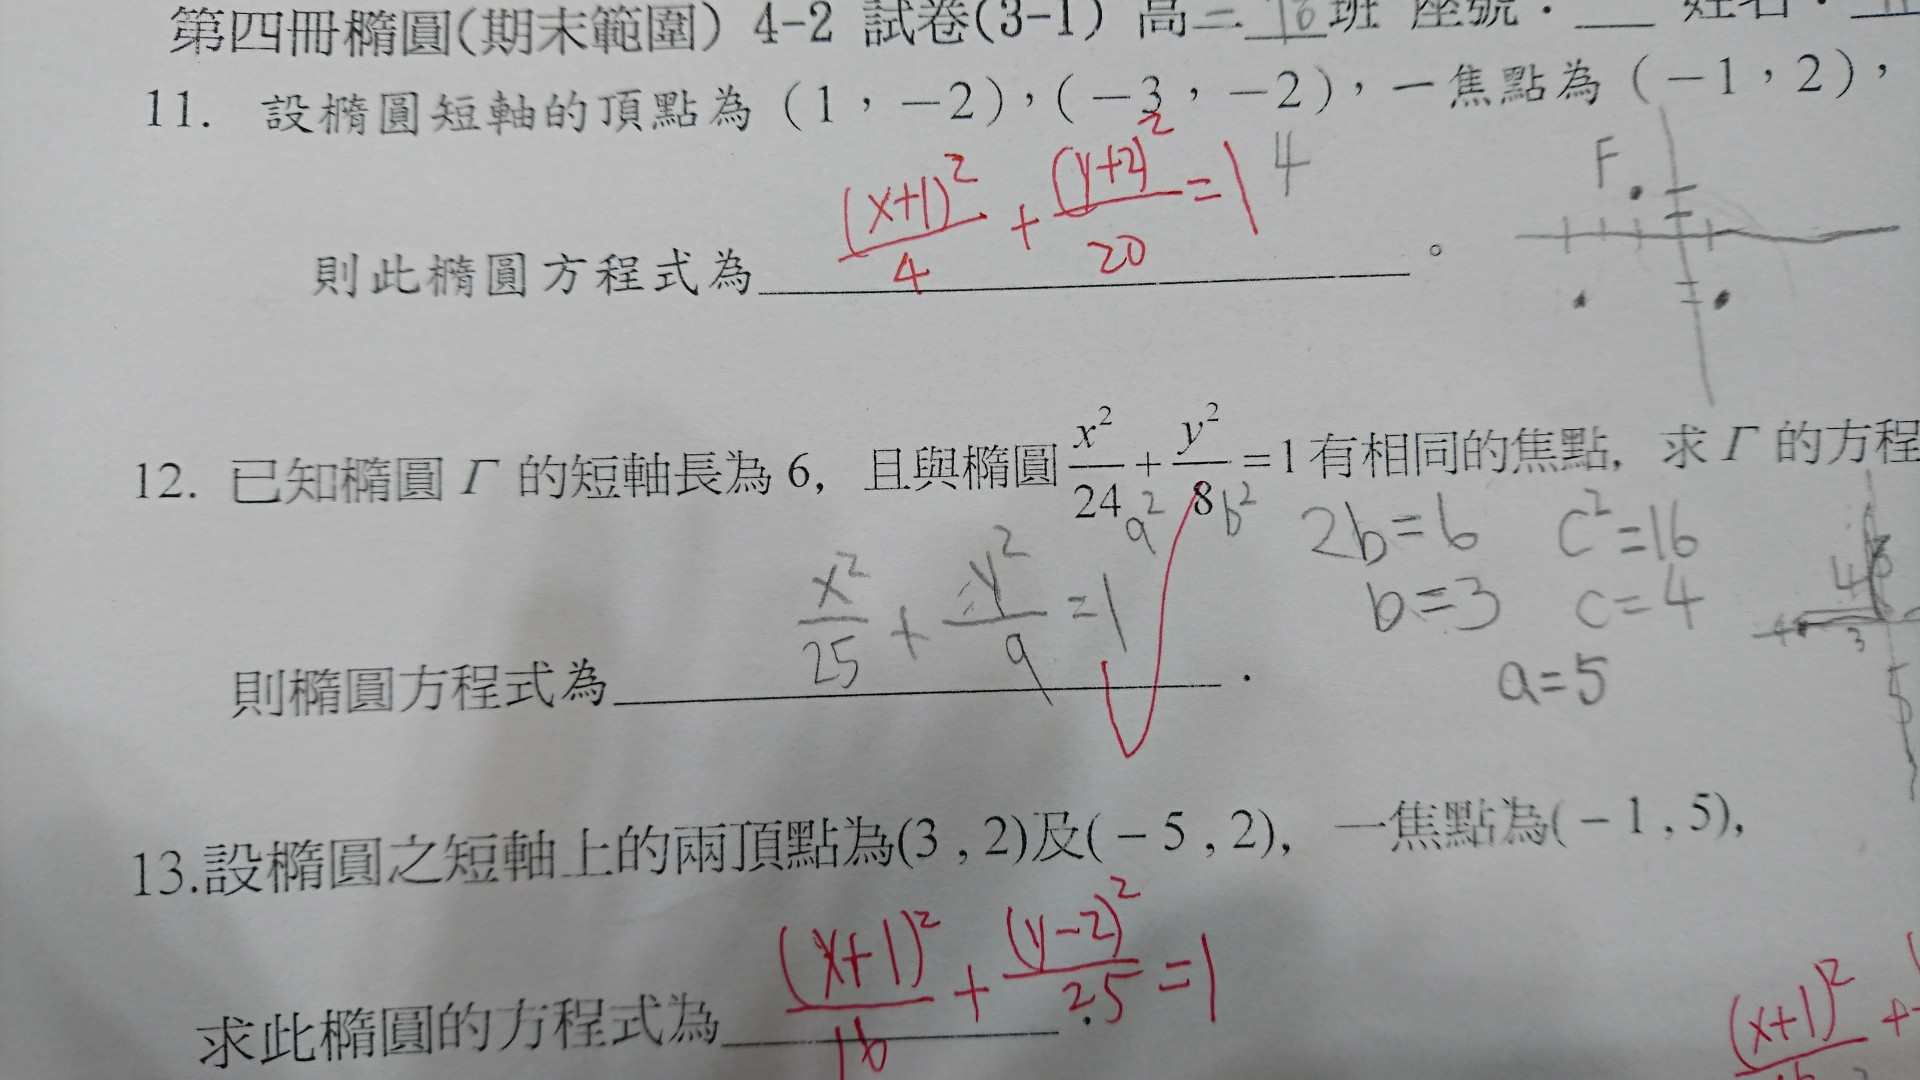 第四冊橢圓(期末範圍) 4-2 試卷(3-1) 高二 班 座號：___ 姓名：
11. 設橢圓短軸的頂點為（1，－2），（－3，－2），一焦點為（－1，2），
(x+1)²/4 + (y+2)²/20 = 1
4
F
則此橢圓方程式為____。
12. 已知橢圓 Γ 的短軸長為 6, 且與橢圓 x²/24 + y²/8 = 1 有相同的焦點, 求 Γ 的方程
a² b² 2b=6 c²=16
x²/25 + y²/9 = 1 b=3 c=4
4
3
a=5
5
則橢圓方程式為____.
13.設橢圓之短軸上的兩頂點為(3 , 2)及(－5 , 2), 一焦點為(－1 , 5),
(x+1)²/16 + (y-2)²/25 = 1
求此橢圓的方程式為____.
(x+1)² +